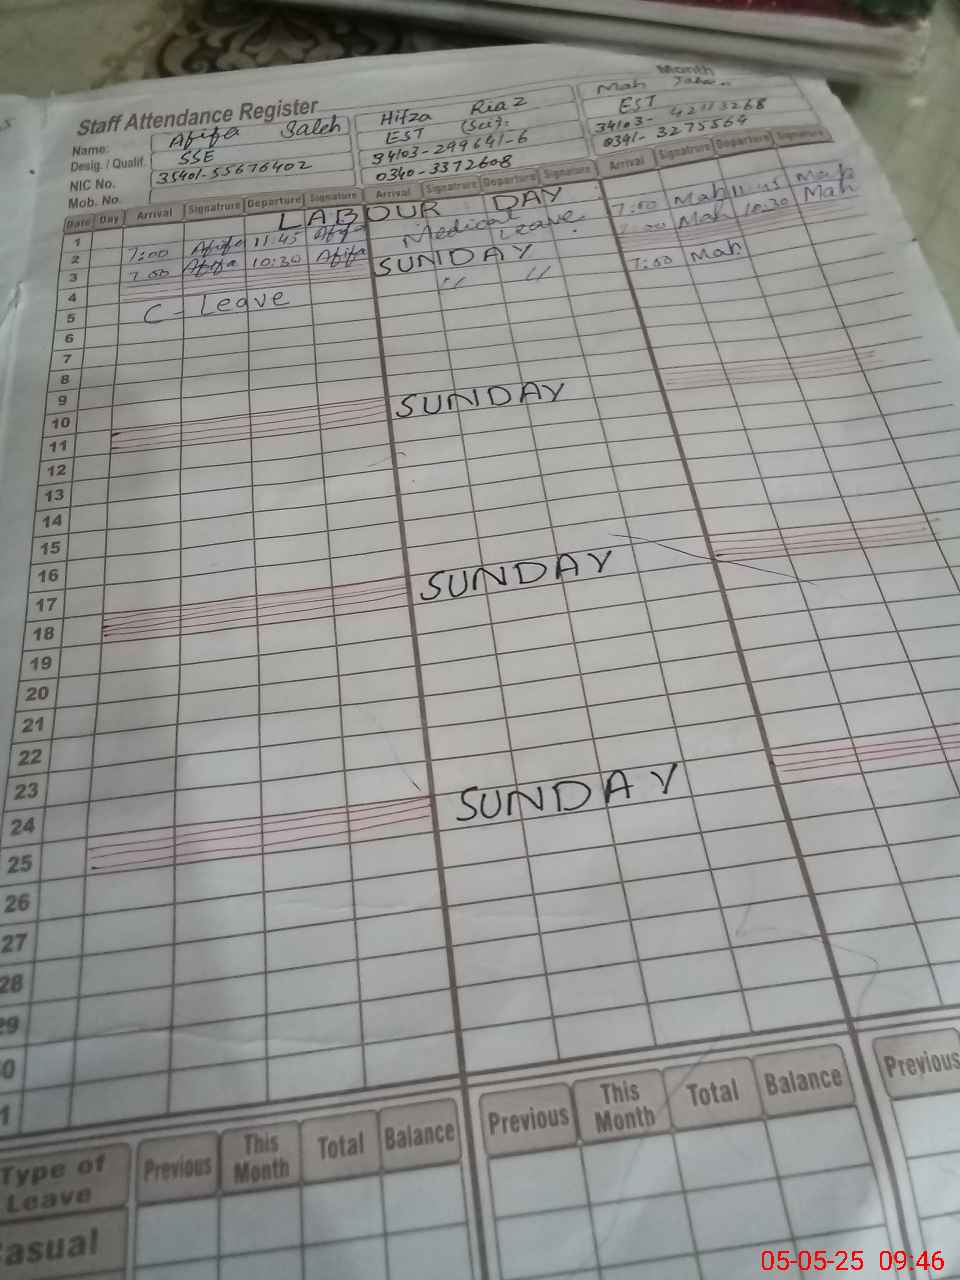 Month
Staff Attendance Register
Name: Afifa Saleh Hifza Riaz Mah
Desig. / Qualif. SSE EST (Sci). EST
NIC No. 35401-55676402 34103-299641-6 34103-
Mob. No. 0340-3372608 0341-3275564
Date Day Arrival Signatrure Departure Signature Arrival Signatrure Departure Signature Arrival Signatrure Departure Signature
LABOUR DAY
1
2 7:00 Afifa 11:45 Afifa Medical Leave 7:00 Mah 11:45 Mah
3 7:00 Afifa 10:30 Afifa 7:00 Mah 10:30 Mah
4 SUNDAY
5 C-Leave " " 7:00 Mah
6
7
8
9
10
11 SUNDAY
12
13
14
15
16
17
18 SUNDAY
19
20
21
22
23
24
25 SUNDAY
26
27
28
29
0
1
Type of Leave Previous This Month Total Balance Previous This Month Total Balance Previous
asual
05-05-25 09:46